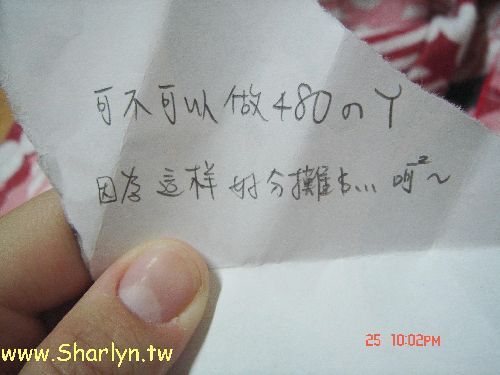 可不可以做480のㄚ
因為這样好分攤... 呵²~
25 10:02PM
www.Sharlyn.tw